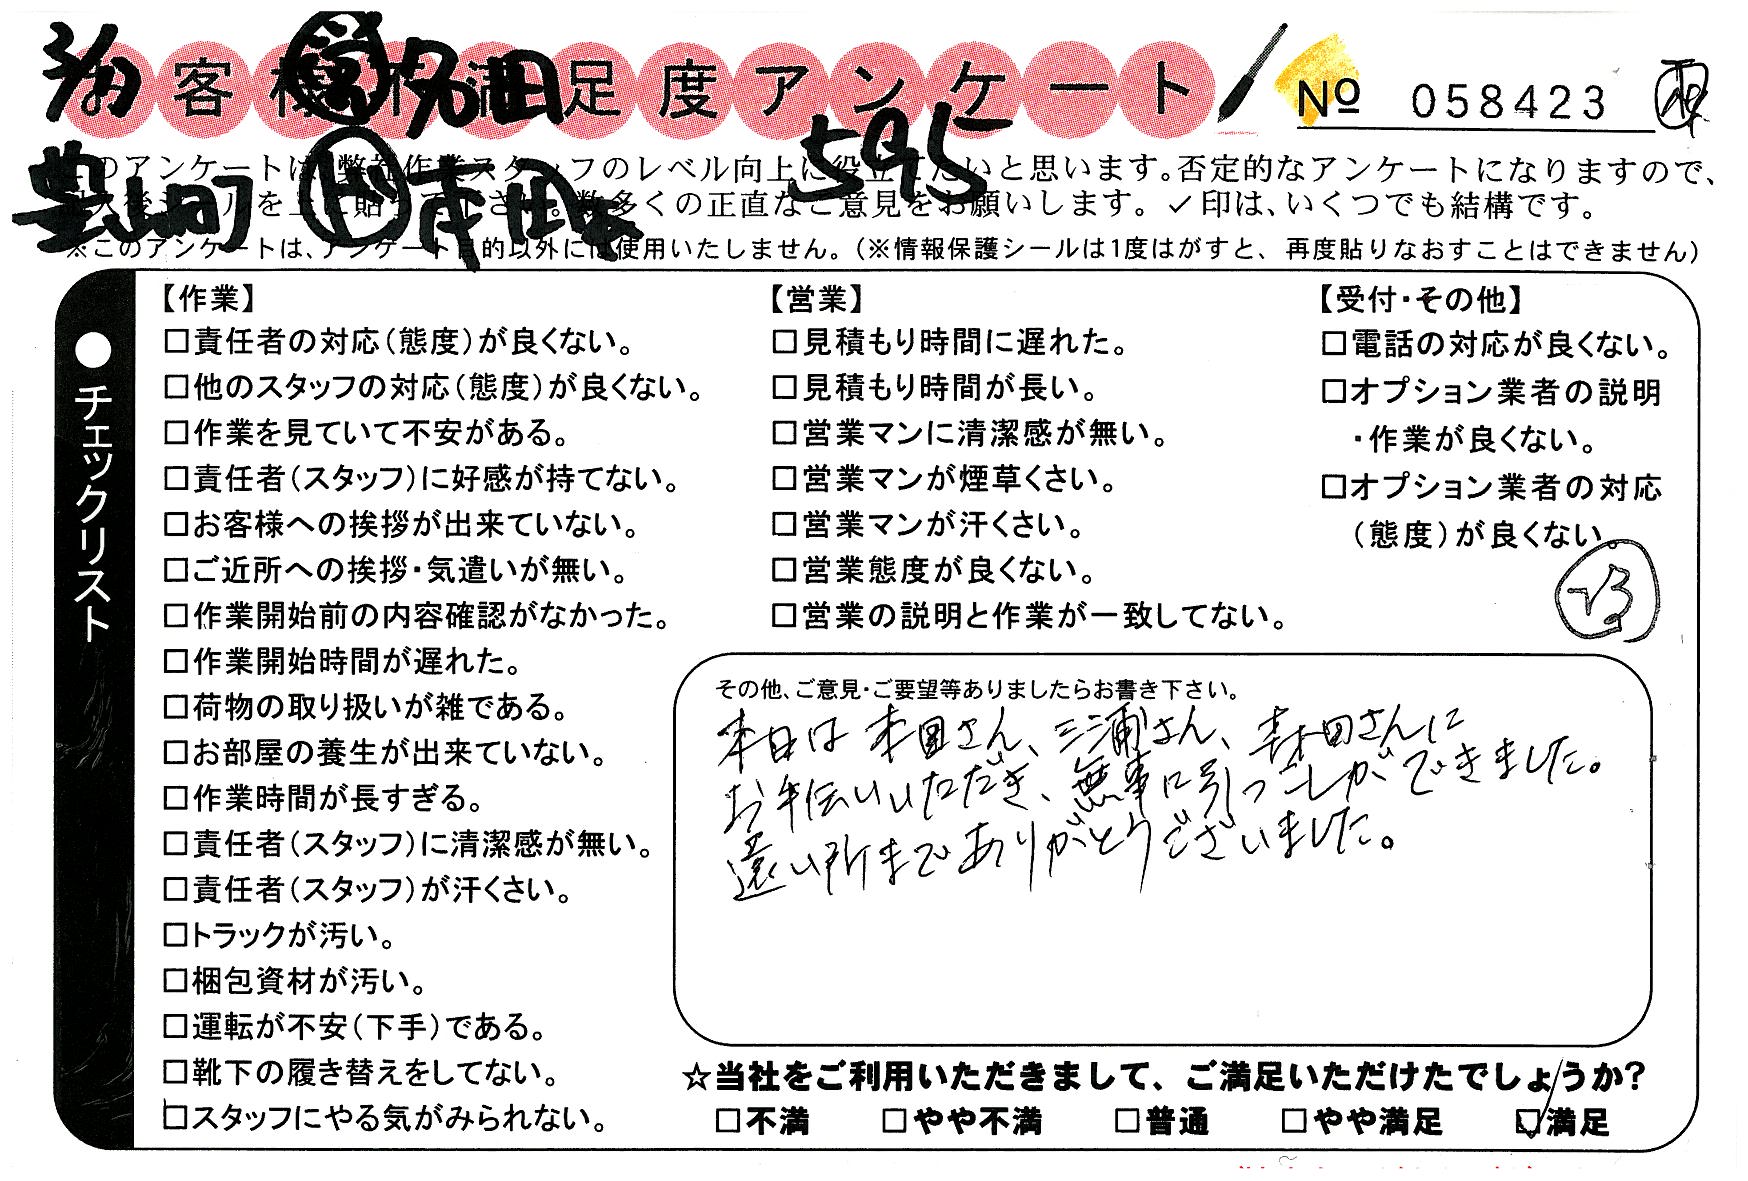 お客様不満足度アンケート
№ 058423
このアンケートは、弊社作業スタッフのレベル向上に役立てたいと思います。否定的なアンケートになりますので、
を上に貼って下さい。数多くの正直なご意見をお願いします。✓印は、いくつでも結構です。
※このアンケートは、アンケート目的以外には使用いたしません。(※情報保護シールは1度はがすと、再度貼りなおすことはできません)
595
●チェックリスト
【作業】
□責任者の対応(態度)が良くない。
□他のスタッフの対応(態度)が良くない。
□作業を見ていて不安がある。
□責任者(スタッフ)に好感が持てない。
□お客様への挨拶が出来ていない。
□ご近所への挨拶・気遣いが無い。
□作業開始前の内容確認がなかった。
□作業開始時間が遅れた。
□荷物の取り扱いが雑である。
□お部屋の養生が出来ていない。
□作業時間が長すぎる。
□責任者(スタッフ)に清潔感が無い。
□責任者(スタッフ)が汗くさい。
□トラックが汚い。
□梱包資材が汚い。
□運転が不安(下手)である。
□靴下の履き替えをしてない。
□スタッフにやる気がみられない。
【営業】
□見積もり時間に遅れた。
□見積もり時間が長い。
□営業マンに清潔感が無い。
□営業マンが煙草くさい。
□営業マンが汗くさい。
□営業態度が良くない。
□営業の説明と作業が一致してない。
【受付・その他】
□電話の対応が良くない。
□オプション業者の説明
・作業が良くない。
□オプション業者の対応
(態度)が良くない。
その他、ご意見・ご要望等ありましたらお書き下さい。
本日は本田さん、三浦さん、幸田さんに
お手伝いいただき、無事に引っこしができました。
遠い所までありがとうございました。
☆当社をご利用いただきまして、ご満足いただけたでしょうか?
□不満 □やや不満 □普通 □やや満足 ☑満足